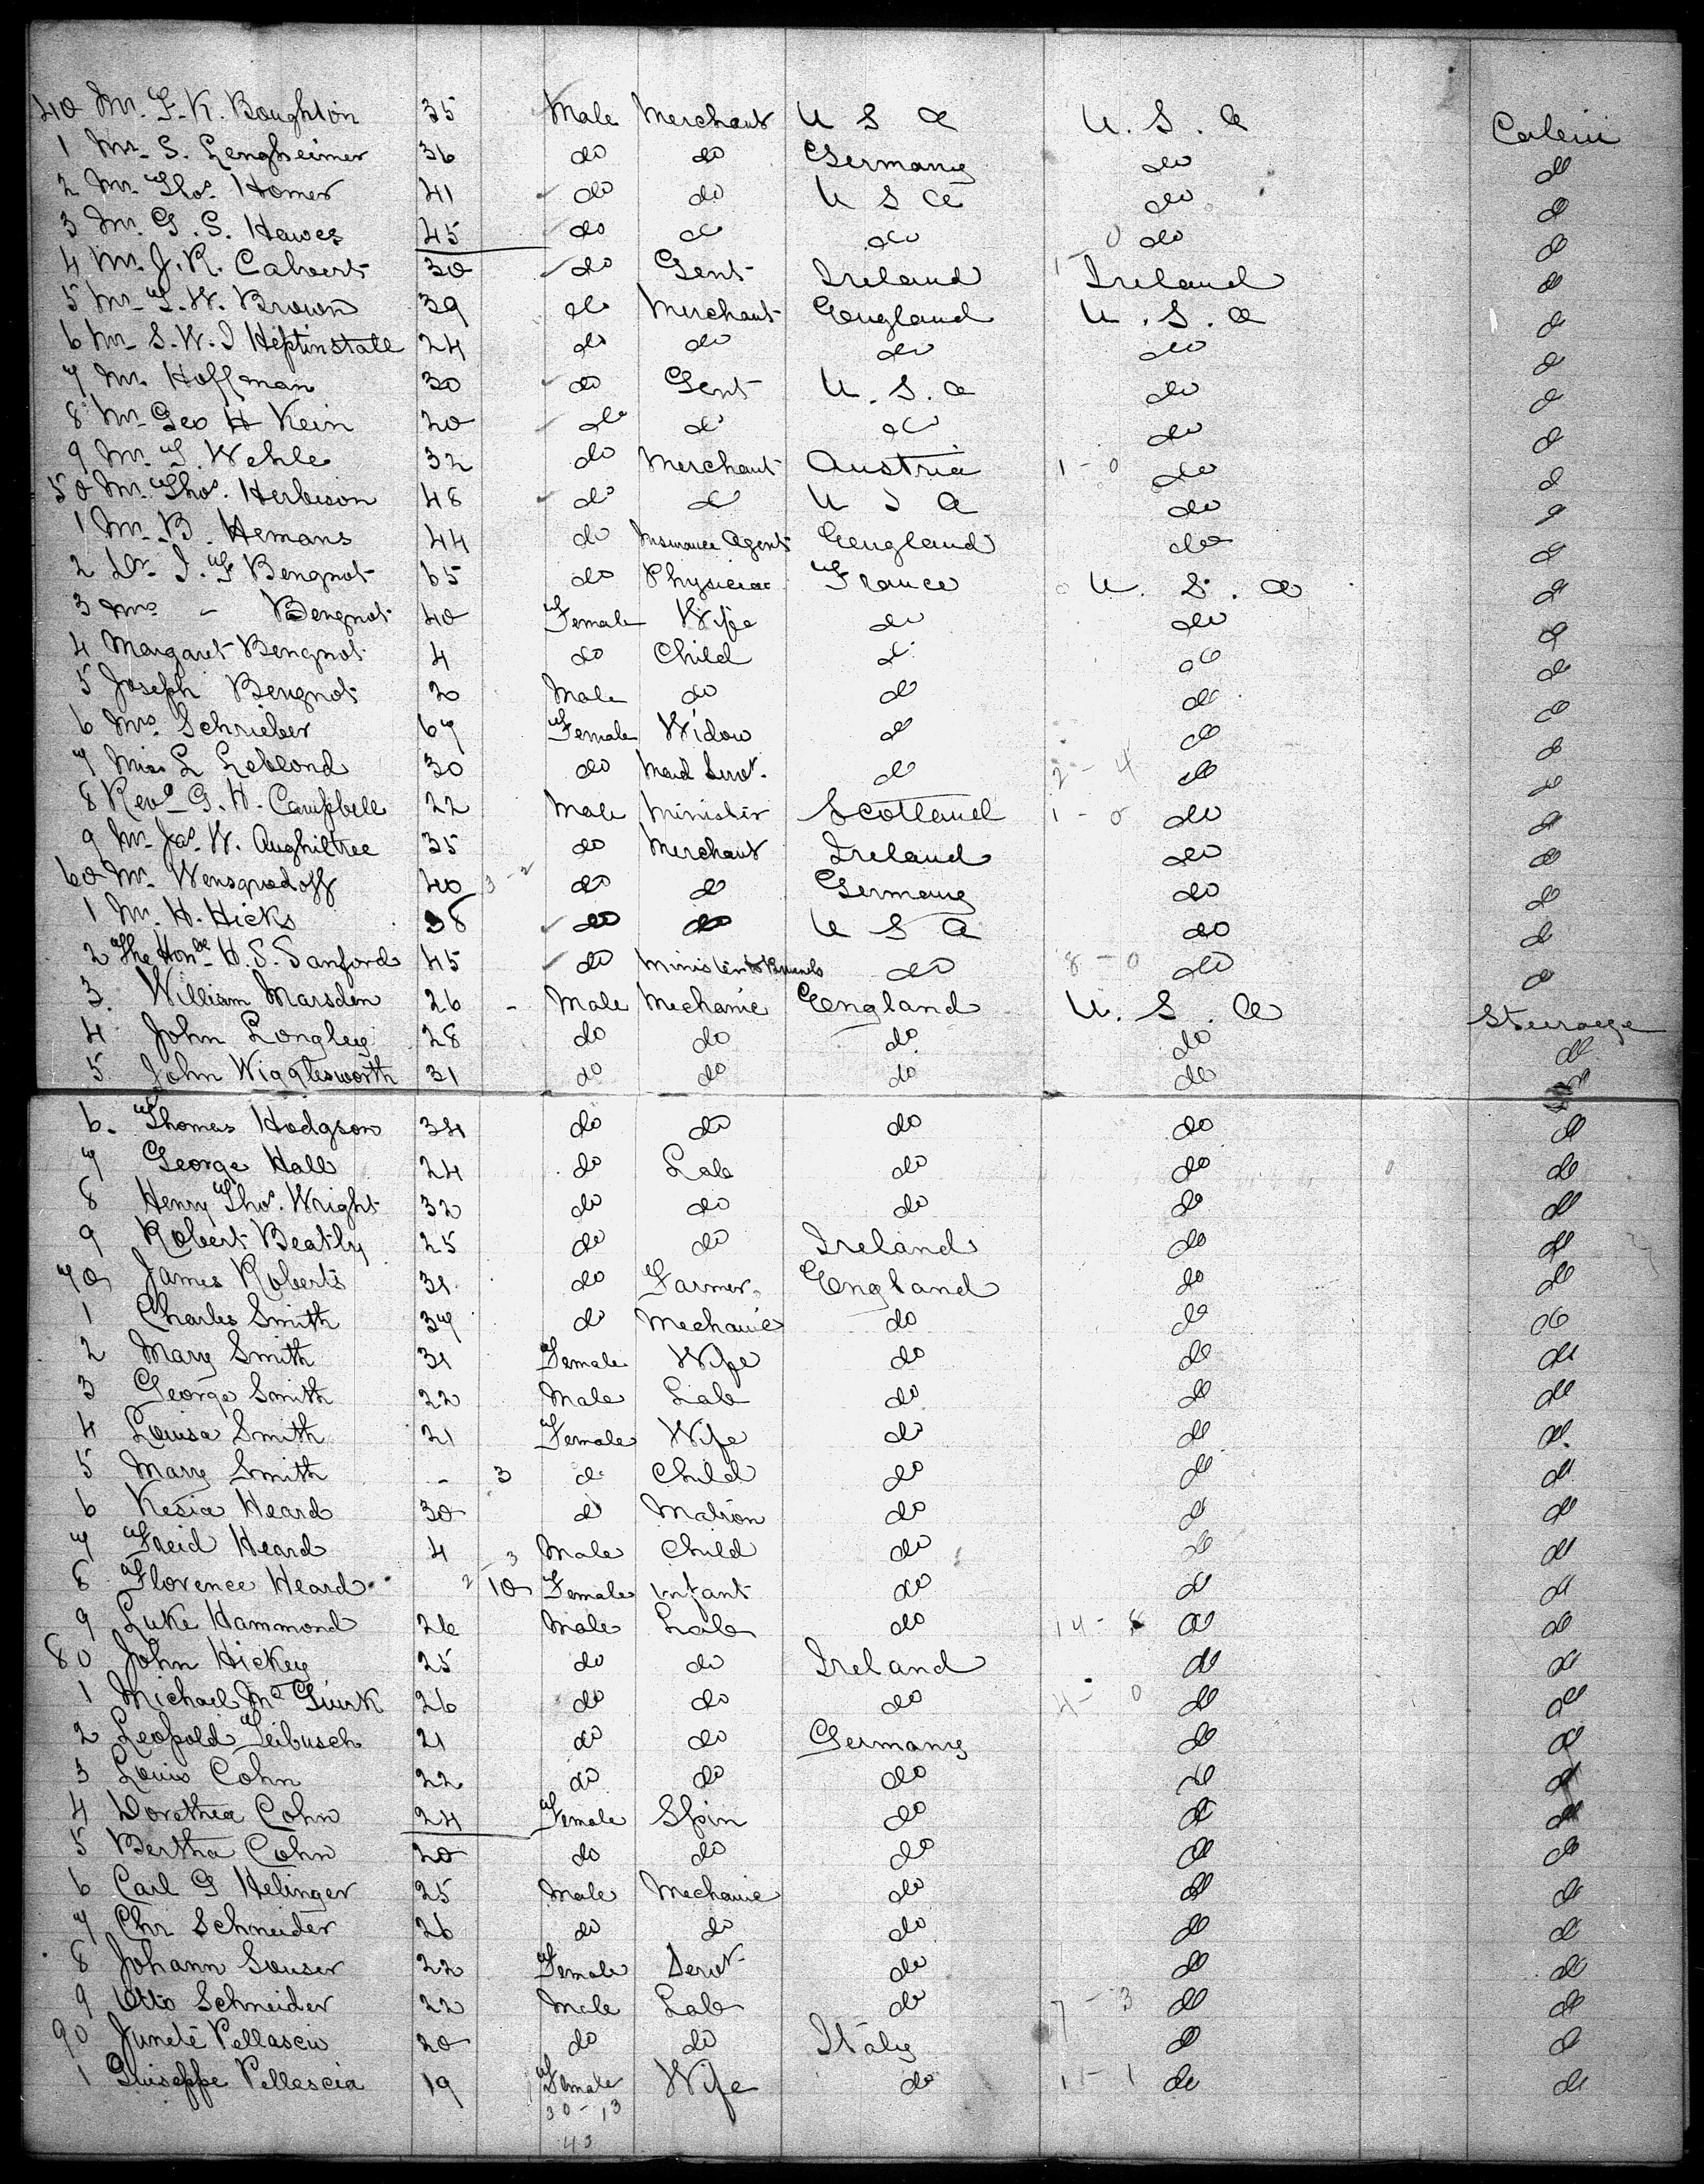 40 Mr. F. K. Boughton 35 Male Merchant U S A U. S. A Cabin
1 Mr. S. Lengheimer 36 do do Germany do d
2 Mr. Thos. Homer 41 do do U S A do d
3 Mr. G. S. Hawes 45 do do do do d
4 Mr. J. R. Calvert 30 do Gent Ireland Ireland d
5 Mr. T. W. Brown 39 do Merchant England U. S. A d
6 Mr. S. W. J Heptinstall 24 do do do do d
7 Mr. Hoffman 30 do Gent U. S. A do d
8 Mr. Geo H Kein 20 do do do do d
9 Mr. T. Wehle 32 do Merchant Austria 1 - 0 do d
50 Mr. Thos. Herbison 48 do do U S A do d
1 Mr. B. Hemans 44 do Insurance Agent England do d
2 Dr. J. F Bengnot 65 do Physician France U. S. A d
3 Mrs - Bengnot 40 Female Wife do do d
4 Margaret Bengnot 4 do Child do do d
5 Joseph Bengnot 20 Male do do do do
6 Mrs Schrieber 67 Female Widow do do do
7 Miss L Leblond 30 do Maid Servt. do 2 - 4 do d
8 Revd G. H. Campbell 22 Male Minister Scotland 1 - 0 do d
9 Mr. Jas. W. Aughiltree 35 do Merchant Ireland do d
60 Mr. 40 3 - 2 do do Germany do d
1 Mr. H. Hicks 38 do do U S A do d
2 The Honble H. S. Sanford 45 do Minister to Brussels do 8 - 0 do d
3. William Marsden 26 - Male Mechanic England U. S. A Steerage
4. John Longley 28 do do do do do
5 John Wigglesworth 31 do do do do do
6. Thomas Hodgson 34 do do do do do
7 George Hall 24 do Lab do do do
8 Henry Thos. Wright 32 do do do do do
9 Robert Beatly 25 do do Ireland do do
70 James Roberts 31 do Farmer England do do
1 Charles Smith 37 do Mechanic do do do
2 Mary Smith 31 Female Wife do do do
3 George Smith 22 Male Lab do do do
4 Louisa Smith 21 Female Wife do do do
5 Mary Smith - 3 do Child do do do
6 Kesia Heard 30 do Matron do do do
7 Heard 4 3 Male Child do do do
8 Florence Heard 2 10 Female Infant do do do
9 Luke Hammond 26 Male Lab do 14 - 8 do do
80 John Hickey 25 do do Ireland do do
1 Michael McGuirk 26 do do do 4 - 0 do do
2 Leopold Leibusch 21 do do Germany do do
3 Louis Cohn 22 do do do do do
4 Dorethea Cohn 24 Female Spin do do do
5 Bertha Cohn 20 do do do do do
6 Carl G Helinger 25 Male Mechanic do do do
7 Chr Schneider 26 do do do do do
8 Johann Souser 22 Female Servt do do do
9 Otto Schneider 22 Male Lab do 7 - 3 do do
90 Pellascia 20 do do Italy do do
1 Guiseppe Pellescia 19 Female Wife do 1 - 1 do do
30 - 13
43